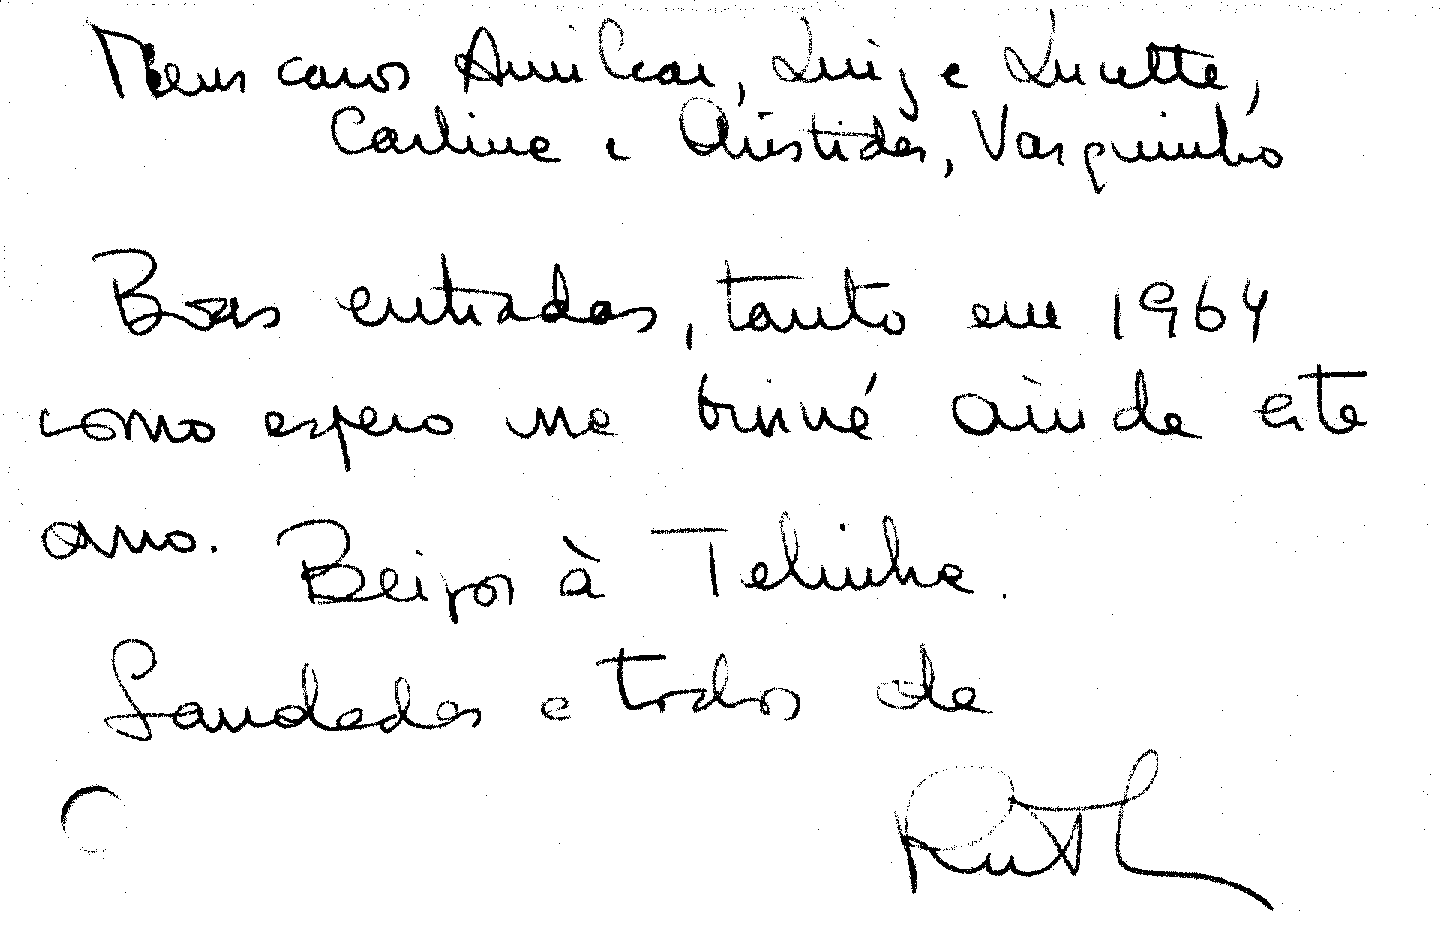 Meus caros Amilcar, Luiz e Lucette,
Carline e Aristides, Varquinho
Boas entradas, tanto em 1964
como espero me ainda este
ano. Beijos à Telinha.
Saudades e todos de
Ruth